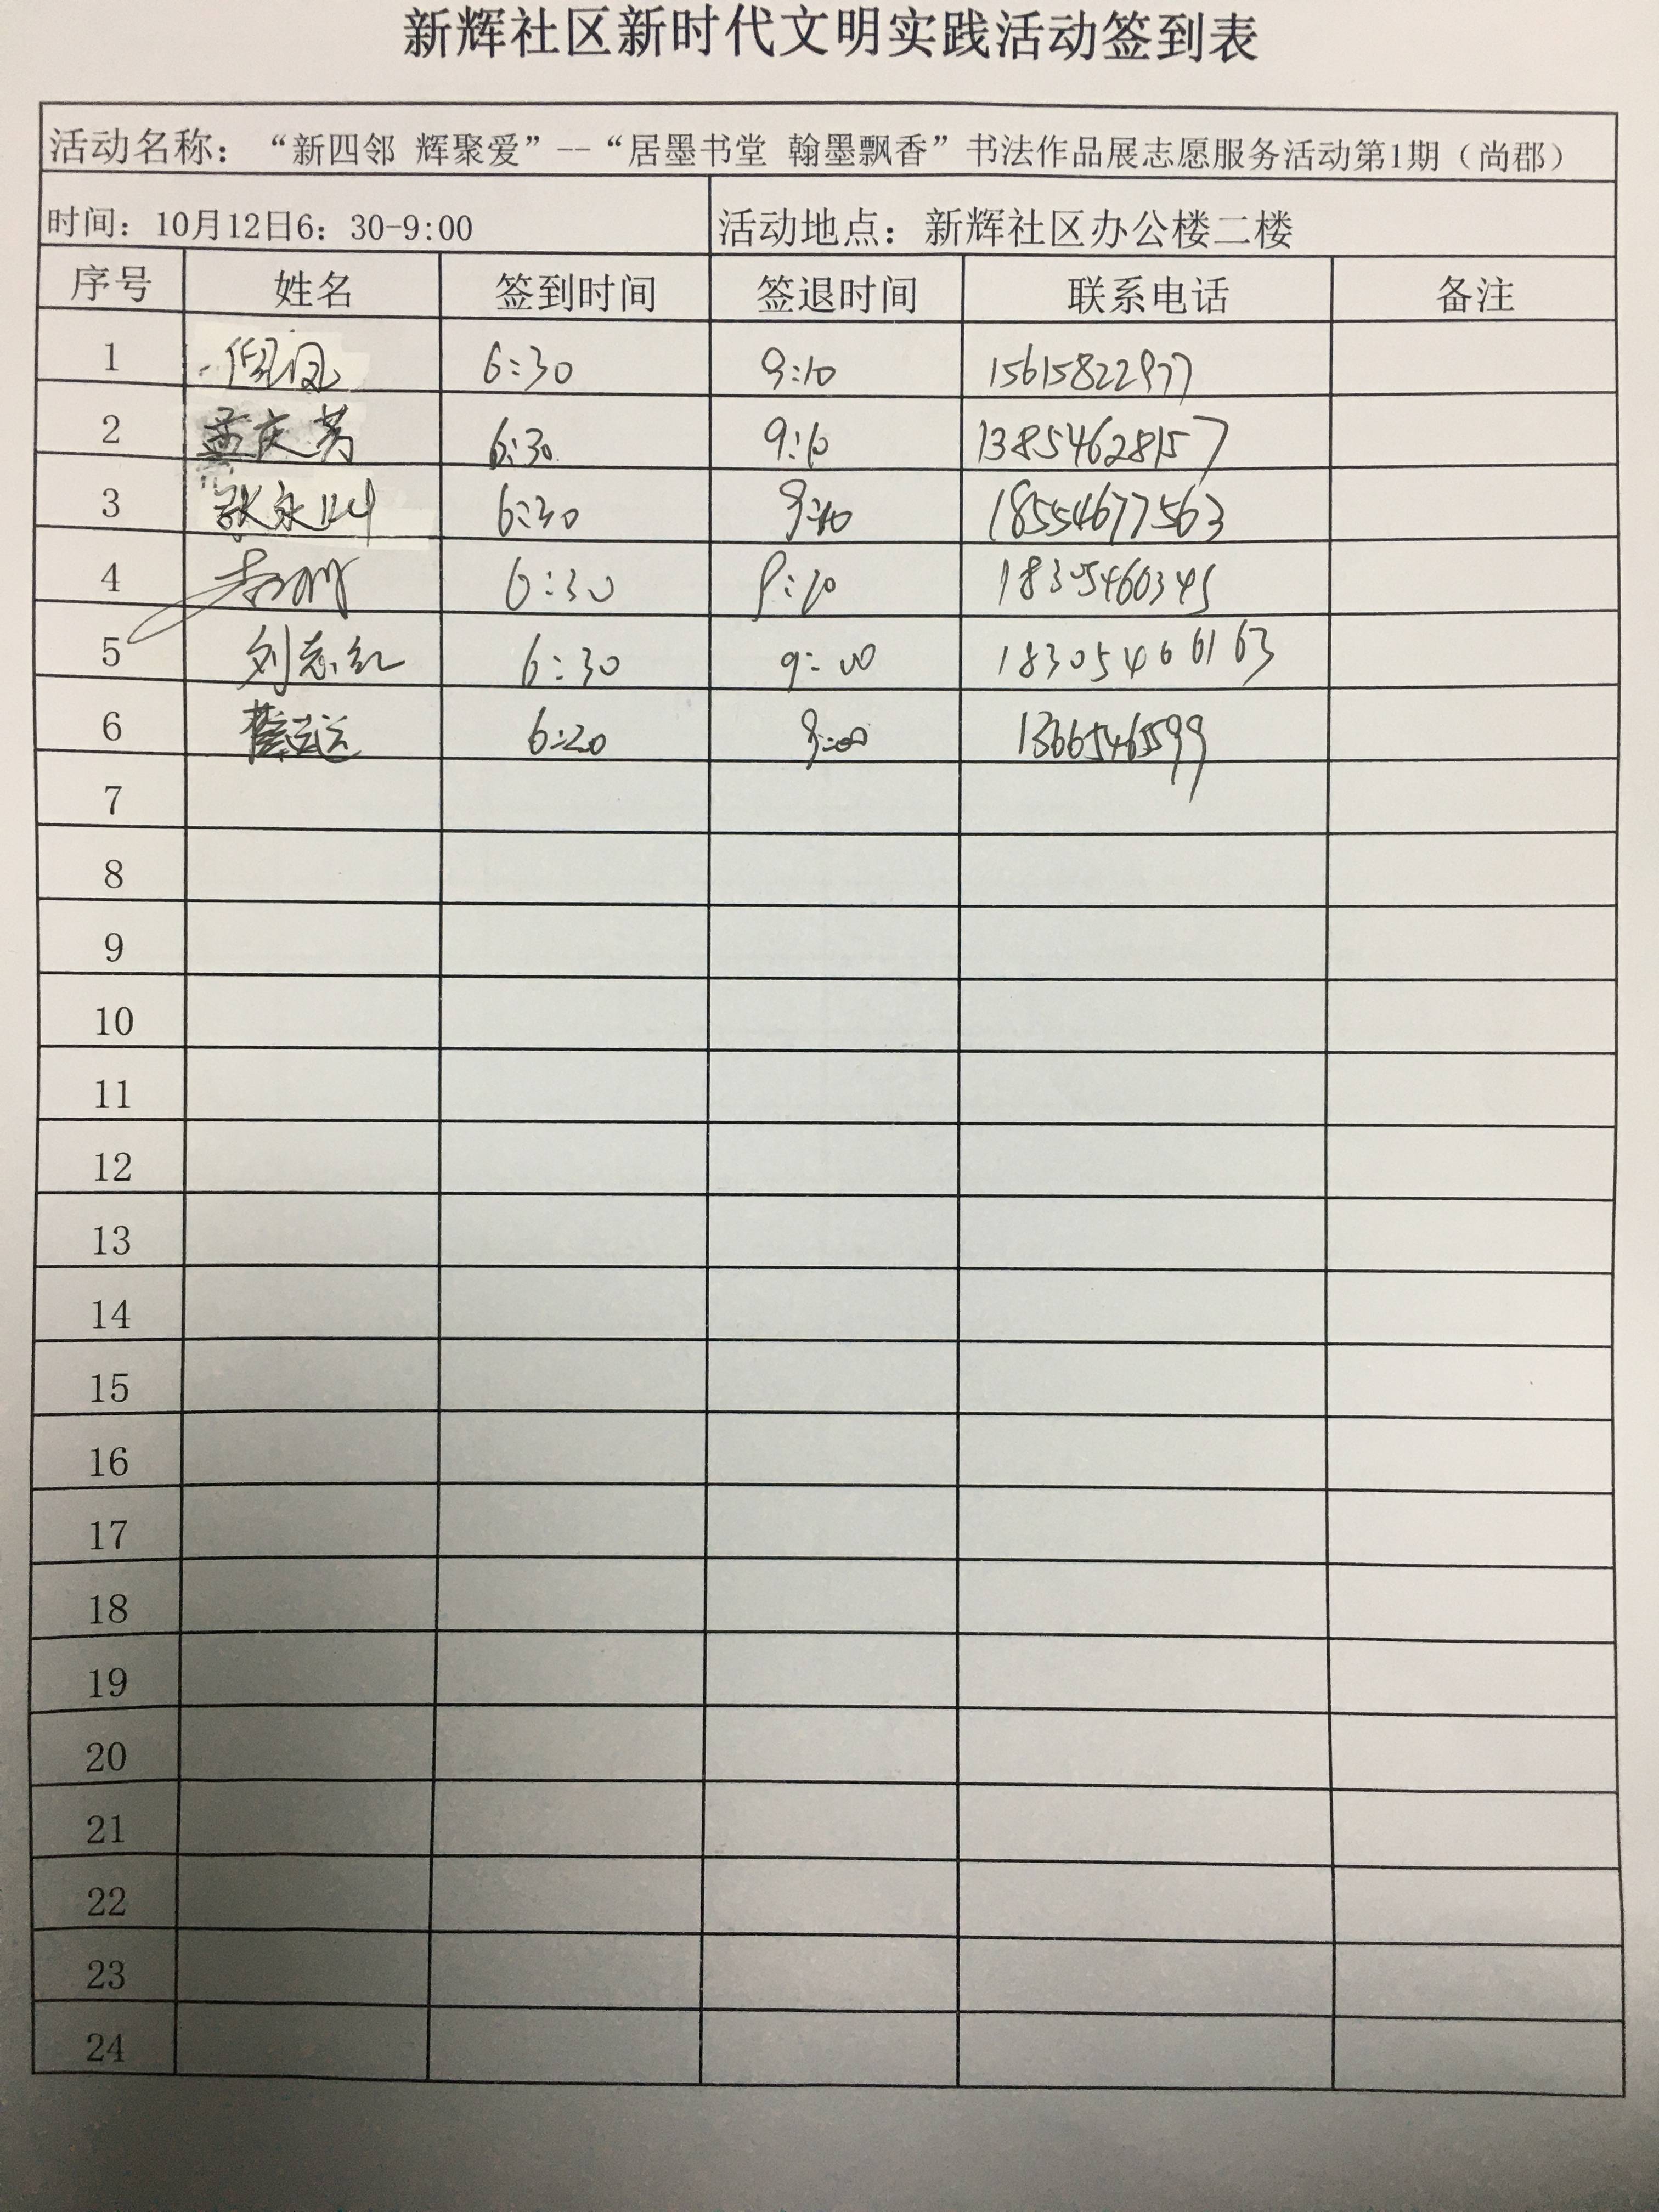 新辉社区新时代文明实践活动签到表
活动名称：“新四邻 辉聚爱”--“居墨书堂 翰墨飘香”书法作品展志愿服务活动第1期（尚郡）
时间：10月12日6：30-9:00 活动地点：新辉社区办公楼二楼
序号 姓名 签到时间 签退时间 联系电话 备注
1 倪凤 6:30 9:10 15615822977
2 孟庆芳 6:30 9:10 13854628157
3 张永 6:30 9:10 18554677563
4 6:30 9:10 18305460345
5 刘志红 6:30 9:00 18305466163
6 6:20 9:00 13665465599
7
8
9
10
11
12
13
14
15
16
17
18
19
20
21
22
23
24